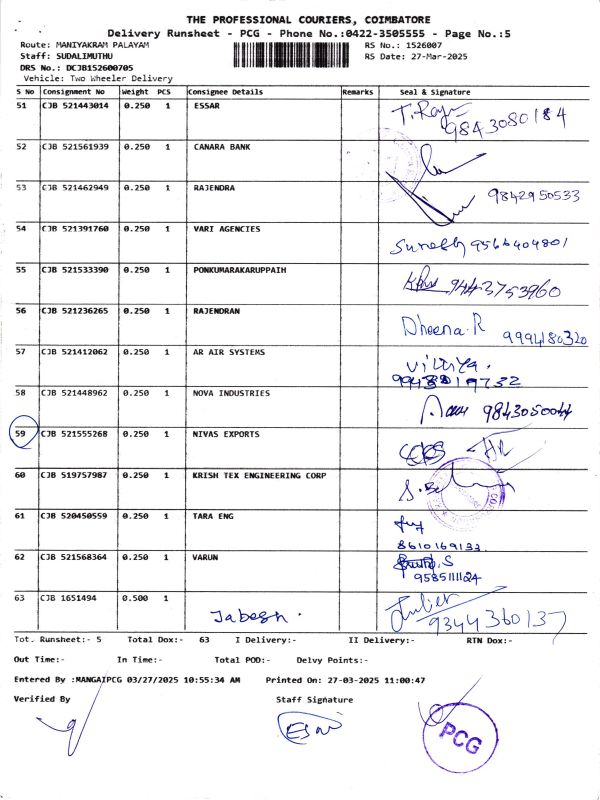 THE PROFESSIONAL COURIERS, COIMBATORE
Delivery Runsheet - PCG - Phone No.:0422-3505555 - Page No.:5
Route: MANIYAKRAM PALAYAM RS No.: 1526007
Staff: SUDALIMUTHU RS Date: 27-Mar-2025
DRS No.: DCJB152600705
Vehicle: Two Wheeler Delivery
S No Consignment No Weight PCS Consignee Details Remarks Seal & Signature
51 CJB 521443014 0.250 1 ESSAR T. Raju
9843080184
52 CJB 521561939 0.250 1 CANARA BANK
53 CJB 521462949 0.250 1 RAJENDRA 9842950533
54 CJB 521391760 0.250 1 VARI AGENCIES Suresh 9566404801
55 CJB 521533390 0.250 1 PONKUMARAKARUPPAIH 9443753960
56 CJB 521236265 0.250 1 RAJENDRAN Dheena.R
9994180320
57 CJB 521412062 0.250 1 AR AIR SYSTEMS
58 CJB 521448962 0.250 1 NOVA INDUSTRIES 9843050044
59 CJB 521555268 0.250 1 NIVAS EXPORTS
60 CJB 519757987 0.250 1 KRISH TEX ENGINEERING CORP
61 CJB 520450559 0.250 1 TARA ENG
8610169133
62 CJB 521568364 0.250 1 VARUN
9585111124
63 CJB 1651494 0.500 1 Jabesh. Juliet
9344360137
Tot. Runsheet:- 5 Total Dox:- 63 I Delivery:- II Delivery:- RTN Dox:-
Out Time:- In Time:- Total POD:- Delvy Points:-
Entered By :MANGAIPCG 03/27/2025 10:55:34 AM Printed On: 27-03-2025 11:00:47
Verified By Staff Signature
PCG